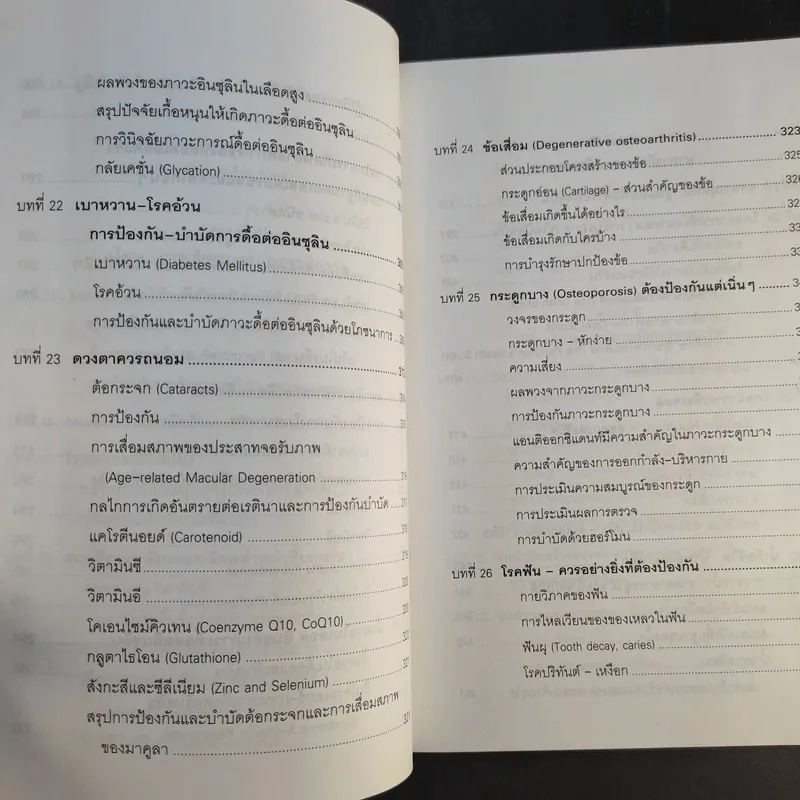 ผลพวงของภาวะอินซุลินในเลือดสูง
สรุปปัจจัยเกื้อหนุนให้เกิดภาวะดื้อต่ออินซุลิน
การวินิจฉัยภาวะการณ์ดื้อต่ออินซุลิน
กลัยเคชั่น (Glycation)
บทที่ 22 เบาหวาน–โรคอ้วน
การป้องกัน–บำบัดการดื้อต่ออินซุลิน
เบาหวาน (Diabetes Mellitus)
โรคอ้วน
การป้องกันและบำบัดภาวะดื้อต่ออินซุลินด้วยโภชนาการ
บทที่ 23 ดวงตาควรถนอม
ต้อกระจก (Cataracts)
การป้องกัน
การเสื่อมสภาพของประสาทจอรับภาพ
(Age-related Macular Degeneration
กลไกการเกิดอันตรายต่อเรตินาและการป้องกันบำบัด
แคโรตีนอยด์ (Carotenoid)
วิตามินซี
วิตามินอี 320
โคเอนไซม์คิวเทน (Coenzyme Q10, CoQ10) 320
กลูตาไธโอน (Glutathione)
สังกะสีและซีลีเนียม (Zinc and Selenium) 321
สรุปการป้องกันและบำบัดต้อกระจกและการเสื่อมสภาพ
ของมาคูลา 321
บทที่ 24 ข้อเสื่อม (Degenerative osteoarthritis) 323
ส่วนประกอบโครงสร้างของข้อ 325
กระดูกอ่อน (Cartilage) – ส่วนสำคัญของข้อ
ข้อเสื่อมเกิดขึ้นได้อย่างไร
ข้อเสื่อมเกิดกับใครบ้าง
การบำรุงรักษาปกป้องข้อ
บทที่ 25 กระดูกบาง (Osteoporosis) ต้องป้องกันแต่เนิ่นๆ
วงจรของกระดูก
กระดูกบาง – หักง่าย
ความเสี่ยง
ผลพวงจากภาวะกระดูกบาง
การป้องกันภาวะกระดูกบาง
แอนติออกซิแดนท์มีความสำคัญในภาวะกระดูกบาง
ความสำคัญของการออกกำลัง-บริหารกาย
การประเมินความสมบูรณ์ของกระดูก
การประเมินผลการตรวจ
การบำบัดด้วยฮอร์โมน
บทที่ 26 โรคฟัน – ควรอย่างยิ่งที่ต้องป้องกัน
กายวิภาคของฟัน
การไหลเวียนของของเหลวในฟัน
ฟันผุ (Tooth decay, caries)
โรคปริทันต์ – เหงือก